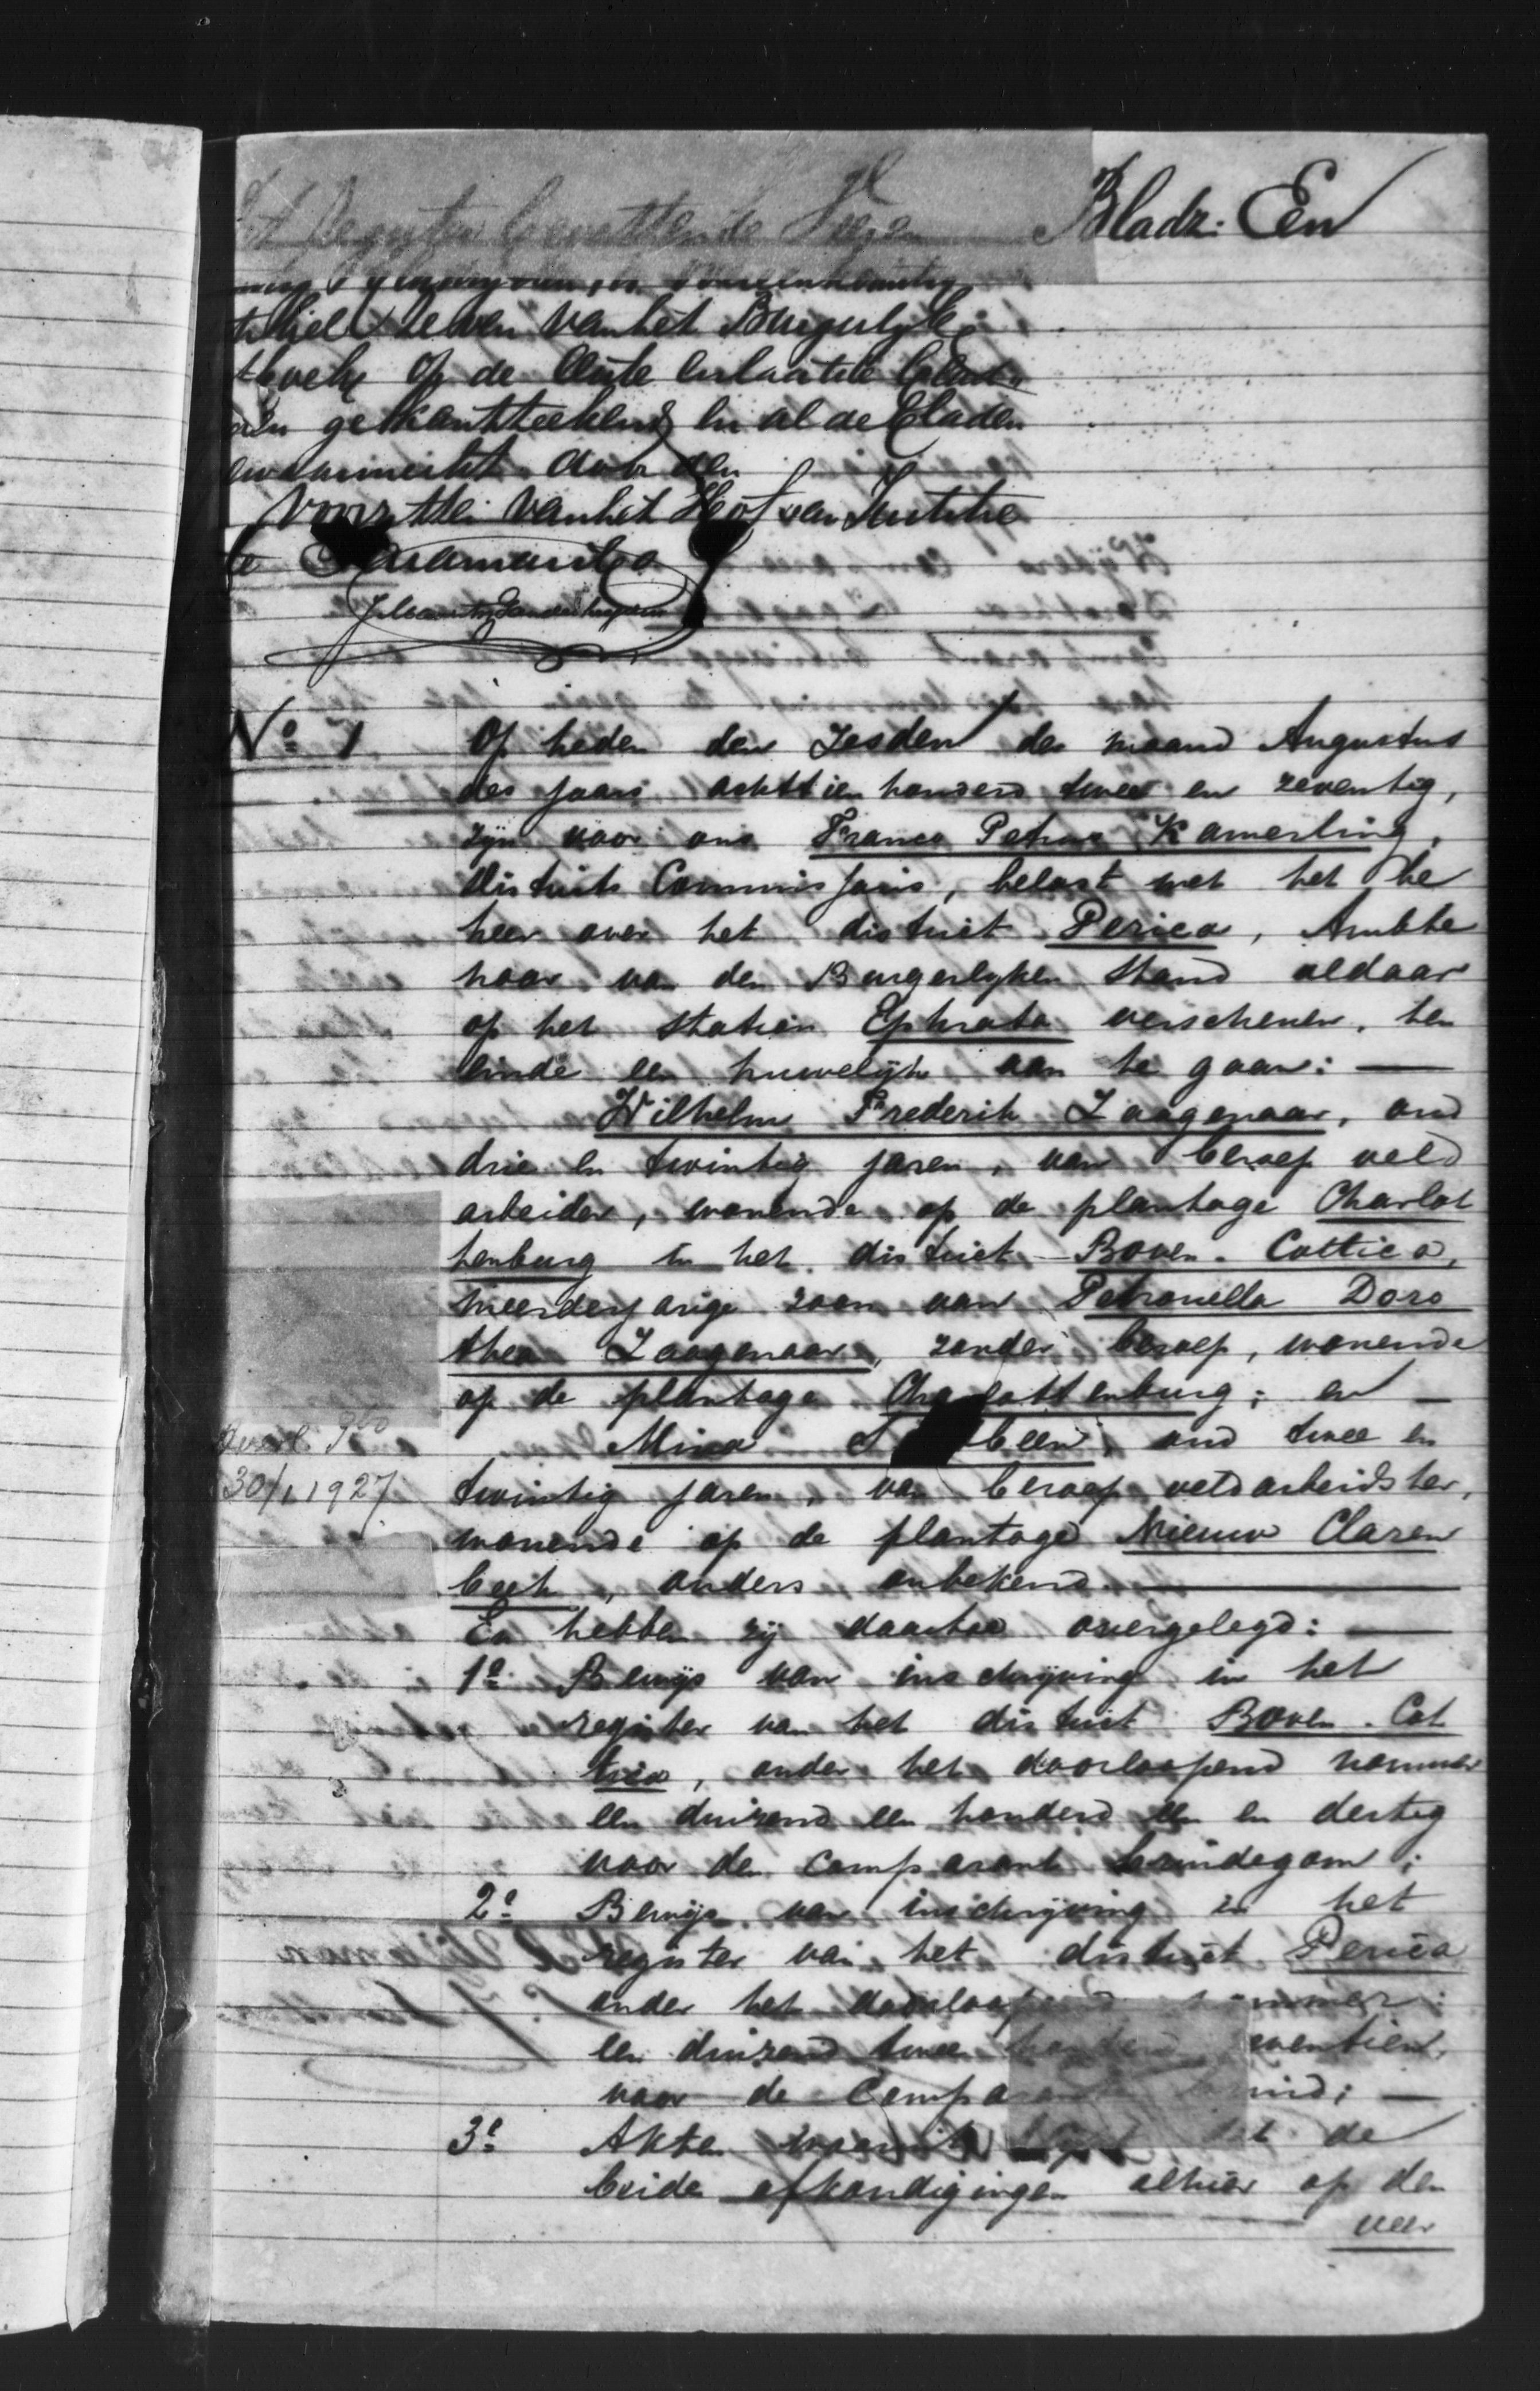 Bladz: En
Register bevattende
van het Burgerlyk
op de eerste en laatste
gekantteekend en al de bladen
gewaarmerkt door den
Voorzitter van het Hof van Justitie
te Paramaribo
No 1 Op heden den Zesden der maand Augustus
des jaars achttien honderd twee en zeventig,
zijn voor ons Franco Petrus Kamerling,
districts Commissaris, belast met het be
heer over het district Perica, Ambte
naar van den Burgerlyken Stand aldaar
op het station Ephrata verschenen, ten
einde een huwelijk aan te gaan: —
Wilhelm Frederik Zaagenaar, oud
drie en twintig jaren, van beroep veld
arbeider, wonende op de plantage Charlot
tenburg in het district Boven-Cottica,
meerderjarige zoon van Petronella Doro
thea Zaagenaar, zonder beroep, wonende
op de plantage Charlottenburg; en —
Mina been, oud twee en
30/1 1927 twintig jaren, van beroep veldarbeidster,
wonende op de plantage Nieuw Claren
beek, anders onbekend. —
En hebben zij daartoe overgelegd: —
1o Bewijs van inschrijving in het
register van het district Boven-Cot
tica, onder het doorloopend nommer
een duizend een honderd een en dertig
voor den Comparant bruidegom;
2o Bewijs van inschrijving in het
register van het district Perica
onder het doorloopend nummer:
een duizend twee honderd zeventien,
voor de Comparante bruid; —
3o Akten waaruit blijkt dat de
beide afkondigingen alhier op den
vier